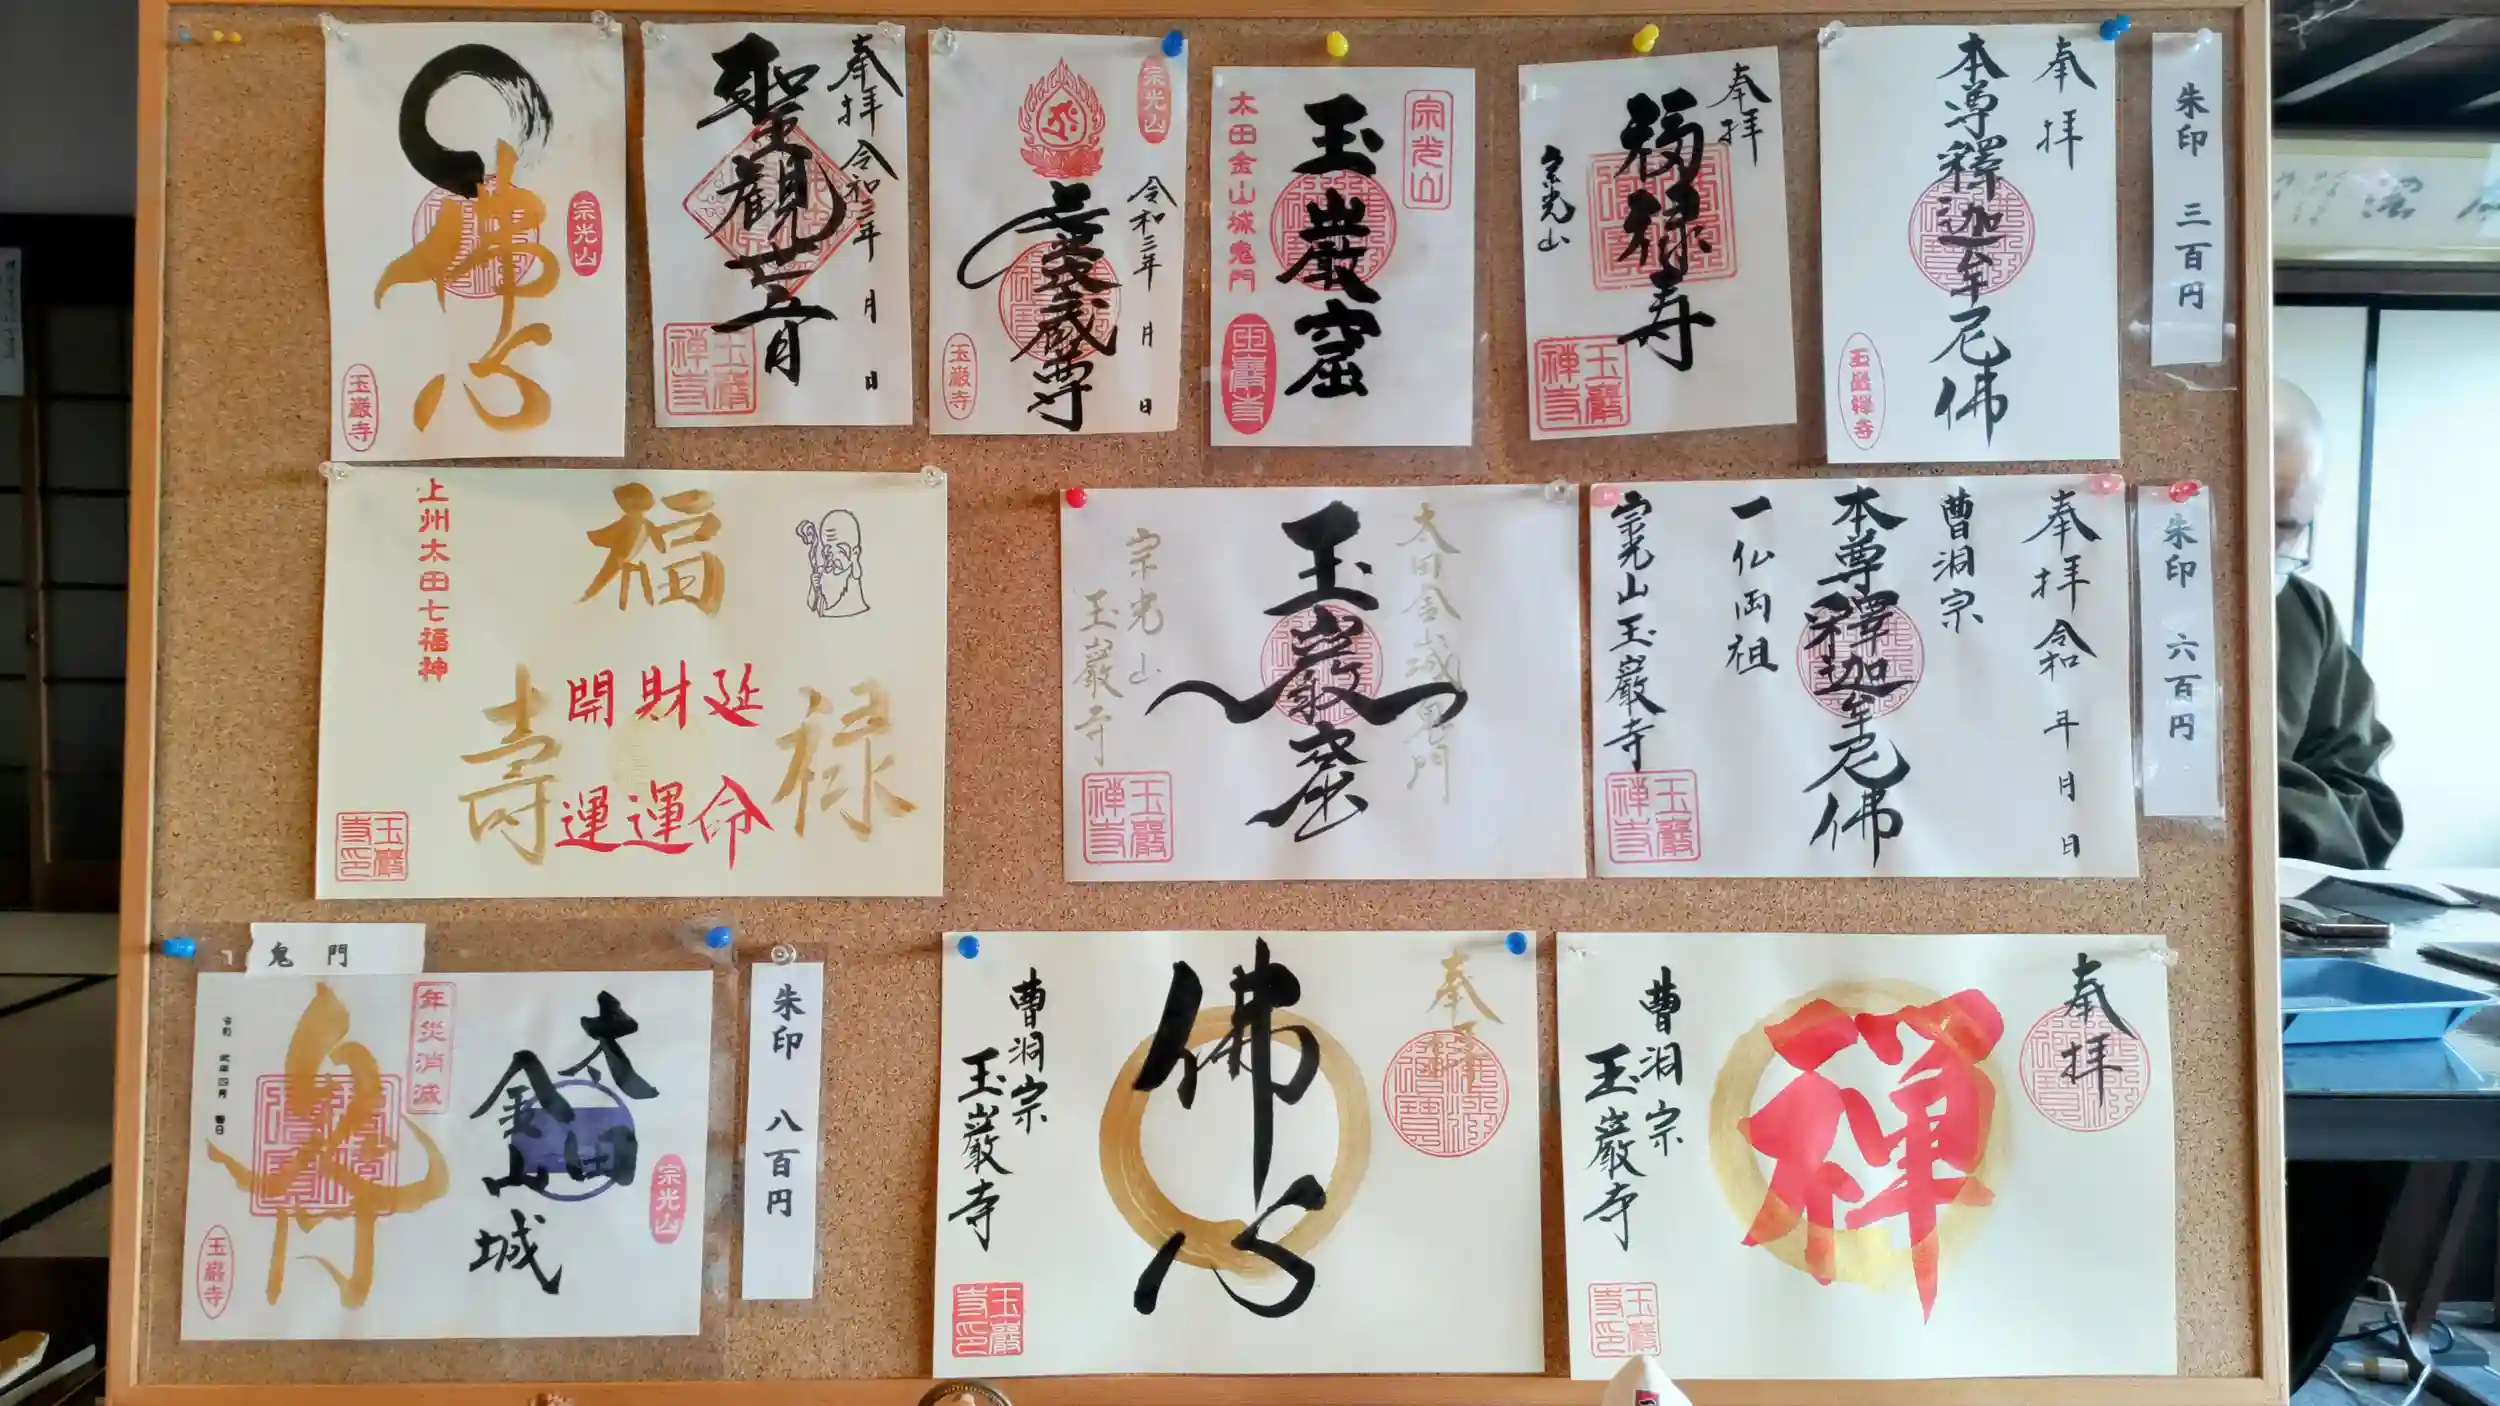 朱印 三百円
奉拝
本尊釋迦牟尼佛
玉巖禅寺
奉拝
福禄寿
宗光山
玉巖禅寺
宗光山
玉巌窟
太田金山城鬼門
玉巖寺
宗光山
令和三年 月 日
玉巌寺
奉拝 令和三年 月 日
聖観世音
玉巖禅寺
佛心
宗光山
玉巌寺
朱印 六百円
奉拝 令和 年 月 日
曹洞宗
本尊釋迦牟尼佛
一仏両祖
宗光山玉巌寺
玉巖禅寺
太田金山城鬼門
玉巌窟
宗光山
玉巌寺
玉巖禅寺
上州太田七福神
福
禄
壽
延命
財運
開運
玉巖寺印
奉拝
禅
曹洞宗
玉巌寺
玉巖寺印
奉拝
佛心
曹洞宗
玉巌寺
玉巖寺印
朱印 八百円
鬼門
太田
金山
城
宗光山
年災消滅
玉巌寺